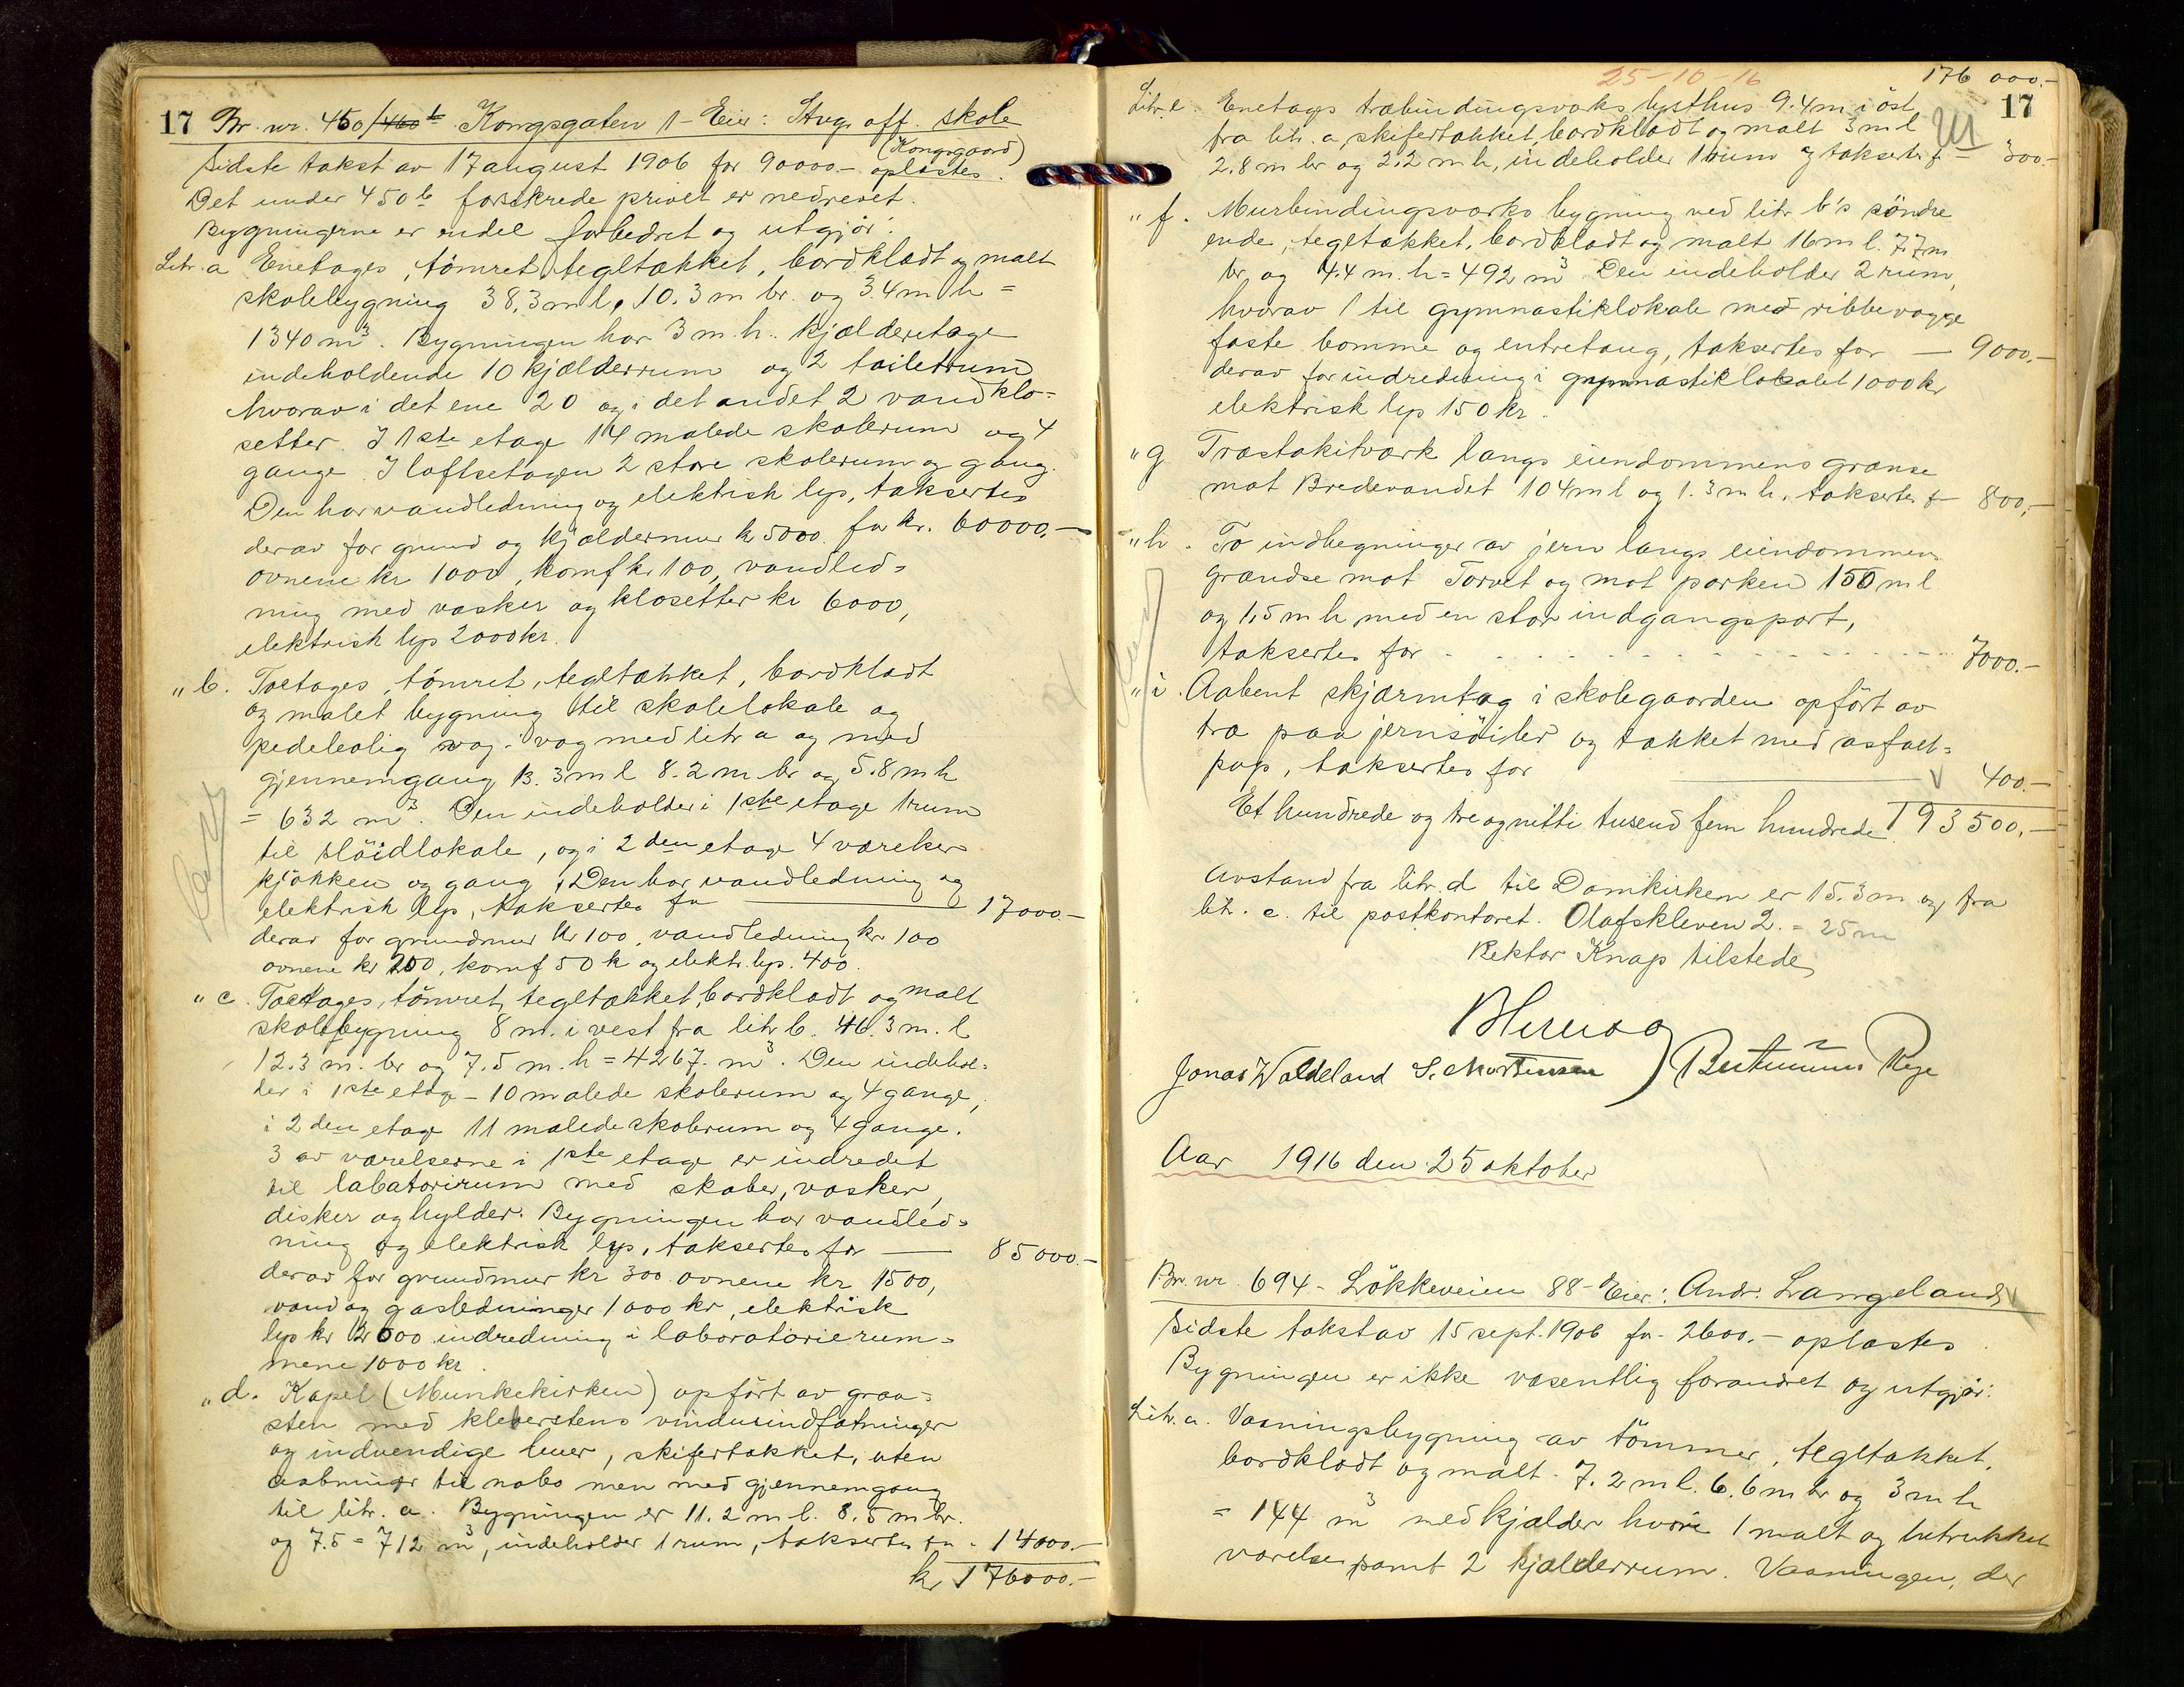 17 Br. nr. 450/460 b Kongsgaten 1 - Eier: Stvgr. off. skole
(Kongsgaard)
Sidste takst av 17 august 1906 for 90000.- oplæstes.
Det under 450 b forsikrede privet er nedrevet.
Bygningerne er endel forbedret og utgjør:
Litr. a Enetages, tömret, tegltækket, bordklædt og malt
skolebygning 38.3 m l, 10.3 m br. og 3.4 m h =
1340 m³. Bygningen har 3 m. h. kjælderetage
indeholdende 10 kjælderrum og 2 toiletrum
hvorav i det ene 20 og i det andet 2 vandklo=
setter. I 1ste etage 14 malede skolerum og 4
gange. I loftsetagen 2 store skolerum og gang.
Den har vandledning og elektrisk lys, taksertes
for kr. 60000.-
derav for grund og kjældermur k 5000.
ovnene kr 1000, komf kr 100, vandled=
ning med vasker og klosetter kr 6000,
elektrisk lys 2000 kr.
„ b. Toetages, tömret, tegltækket, bordklædt
og malet bygning til skolelokale og
pedelbolig væg i væg med litr a og med
gjennemgang 13.3 m l 8.2 m br og 5.8 m h
= 632 m³. Den indeholder i 1ste etage 1 rum
til slöidlokale, og i 2den etage 4 værelser
kjökken og gang. Den har vandledning og
elektrisk lys, taksertes for 17000.-
derav for grundmur kr 100, vandledning kr 100
ovnene kr 200, komf 50 k og elektr. lys. 400.
„ c. Toetages, tömret, tegltækket, bordklædt og malt
skolebygning 8 m. i vest fra litr b. 46.3 m. l
12.3 m. br og 7.5 m. h = 4267. m³. Den indehol=
der i 1ste etage - 10 malede skolerum og 4 gange,
i 2den etage 11 malede skolerum og 4 gange.
3 av værelserne i 1ste etage er indredet
til labatorirum med skaber, vasker,
disker og hylder. Bygningen har vandled=
ning og elektrisk lys, taksertes for 85000.-
derav for grundmur kr 300 ovnene kr 1500,
vand og gasledninger 1000 kr, elektrisk
lys kr 2000 indredning i laboratorierum=
mene 1000 kr.
„ d. Kapel (Munkekirken) opfört av graa=
sten med klebersten vindusindfatninger
og indvendige buer, skifertækket, uten
aabninger til nabo men med gjennemgang
til litr. a. Bygningen er 11.2 m l. 8.5 m br.
og 7.5 = 712 m³, indeholder 1 rum, taksertes for - 14000.-
kr 176000.-
25-10-16
176 000.-
17
Litr. e. Enetages træbindingsværks lysthus 9.4 m i öst
fra litr. a, skifertækket, bordklædt og malt 3 m l
2.8 m br og 2.2 m h, indeholder 1 rum og taksertes f - 300.-
„ f. Murbindingsværks bygning ved litr b's söndre
ende, tegltækket, bordklædt og malt 16 m l. 7.7 m
br og 4.4 m. h = 492 m³ Den indeholder 2 rum,
hvorav 1 til gymnastiklokale med ribbevægge
faste bomme og entretaug, taksertes for - 9000.-
derav for indredning i gymnastiklokalet 1000 kr
elektrisk lys 150 kr.
„ g Træstakitværk langs eiendommens grænse
mot Bredevandet 104 m l og 1.3 m h. taksertes f - 800.-
„ h. To indhegninger av jern langs eiendommen
grændse mot Torvet og mot parken 150 m l
og 1,5 m h med en stor indgangsport,
taksertes for 7000.-
„ i. Aabent skjærmtag i skolegaarden opfört av
træ paa jernsöiler og tækket med asfalt=
pap, taksertes for 400.-
Et hundrede og tre og nitti tusend fem hundrede 193500.-
Avstand fra litr. d til Domkirken er 15.3 m og fra
litr. c. til postkontoret. Olafskleven 2. = 25 m
Rektor Knap tilstede
Jonas Waldeland S. Mortensen Bertinius Rege
Aar 1916 den 25 oktober
Br. nr. 694 - Lökkeveien 88 - Eier: Andr. Langeland
Sidste takst av 15 sept. 1906 for 2600.- oplæstes
Bygningen er ikke væsentlig forandret og utgjör:
Litr. a. Vaaningsbygning av tömmer, tegltækket,
bordklædt og malt. 7.2 m l. 6.6 m br og 3 m h
= 144 m³ med kjælder hvori 1 malt og betrukket
værelse samt 2 kjælderrum. Vaaningen, der